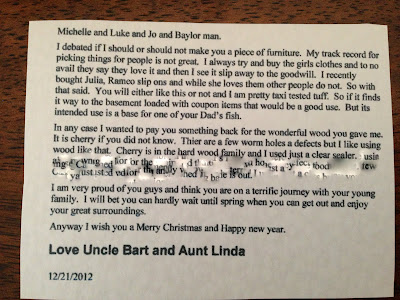 Michelle and Luke and Jo and Baylor man.
I debated if I should or should not make you a piece of furniture. My track record for
picking things for people is not great. I always try and buy the girls clothes and to no
avail they say they love it and then I see it slip away to the goodwill. I recently
bought Julia, Rameo slip ons and while she loves them other people do not. So with
that said. You will either like this or not and I am pretty taxi tested tuff. So if it finds
it way to the basement loaded with coupon items that would be a good use. But its
intended use is a base for one of your Dad's fish.
In any case I wanted to pay you something back for the wonderful wood you gave me.
It is cherry if you did not know. Thier are a few worm holes a defects but I like using
wood like that. Cherry is in the hard wood family and I used just a clear sealer.
I am very proud of you guys and think you are on a terrific journey with your young
family. I will bet you can hardly wait until spring when you can get out and enjoy
your great surroundings.
Anyway I wish you a Merry Christmas and Happy new year.
Love Uncle Bart and Aunt Linda
12/21/2012